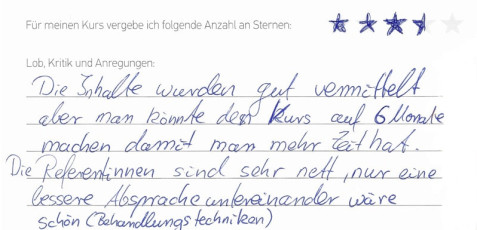 Für meinen Kurs vergebe ich folgende Anzahl an Sternen:
Lob, Kritik und Anregungen:
Die Inhalte wurden gut vermittelt
aber man könnte den Kurs auf 6 Monate
machen damit man mehr Zeit hat.
Die Referentinnen sind sehr nett, nur eine
bessere Absprache untereinander wäre
schön (Behandlungstechniken)